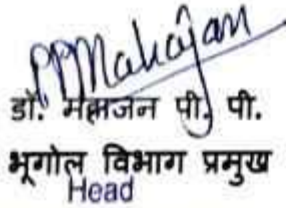 PPMahajan
डॉ. महाजन पी. पी.
भूगोल विभाग प्रमुख
Head